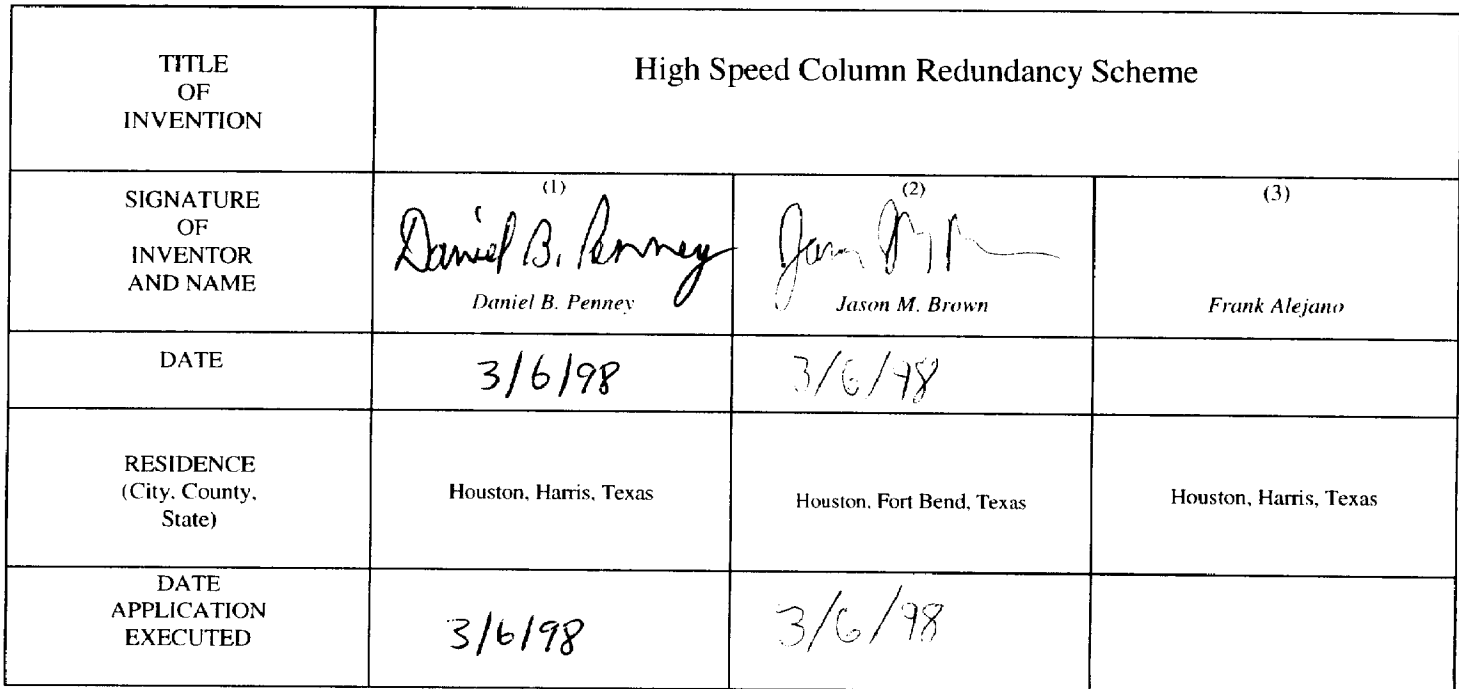 TITLE
OF
INVENTION
High Speed Column Redundancy Scheme
SIGNATURE
OF
INVENTOR
AND NAME
(1)
Daniel B. Penney
Daniel B. Penney
(2)
Jason M
Jason M. Brown
(3)
Frank Alejano
DATE
3/6/98
3/6/98
RESIDENCE
(City, County,
State)
Houston, Harris, Texas
Houston, Fort Bend, Texas
Houston, Harris, Texas
DATE
APPLICATION
EXECUTED
3/6/98
3/6/98